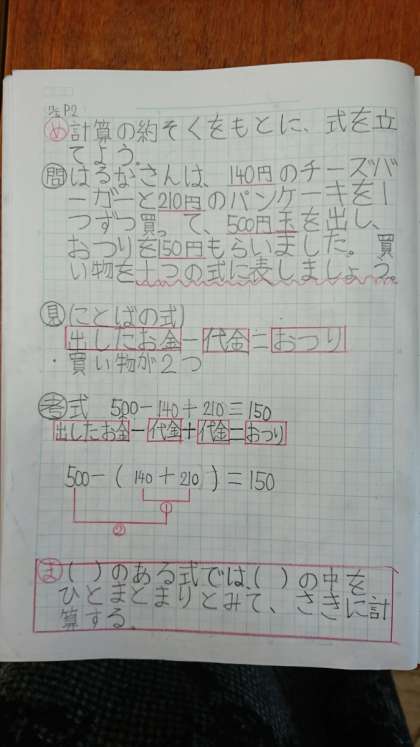 P2
め 計算の約そくをもとに、式を立
てよう。
問 はるなさんは、140円のチーズバ
ーガーと210円のパンケーキを1
つずつ買って、500円玉を出し、
おつりを150円もらいました。買
い物を1つの式に表しましょう。
見 (ことばの式)
出したお金-代金=おつり
・買い物が2つ
考 式 500-140+210=150
出したお金-代金+代金=おつり
500-(140+210)=150
①
②
ま ( )のある式では、( )の中を
ひとまとまりとみて、さきに計
算する。